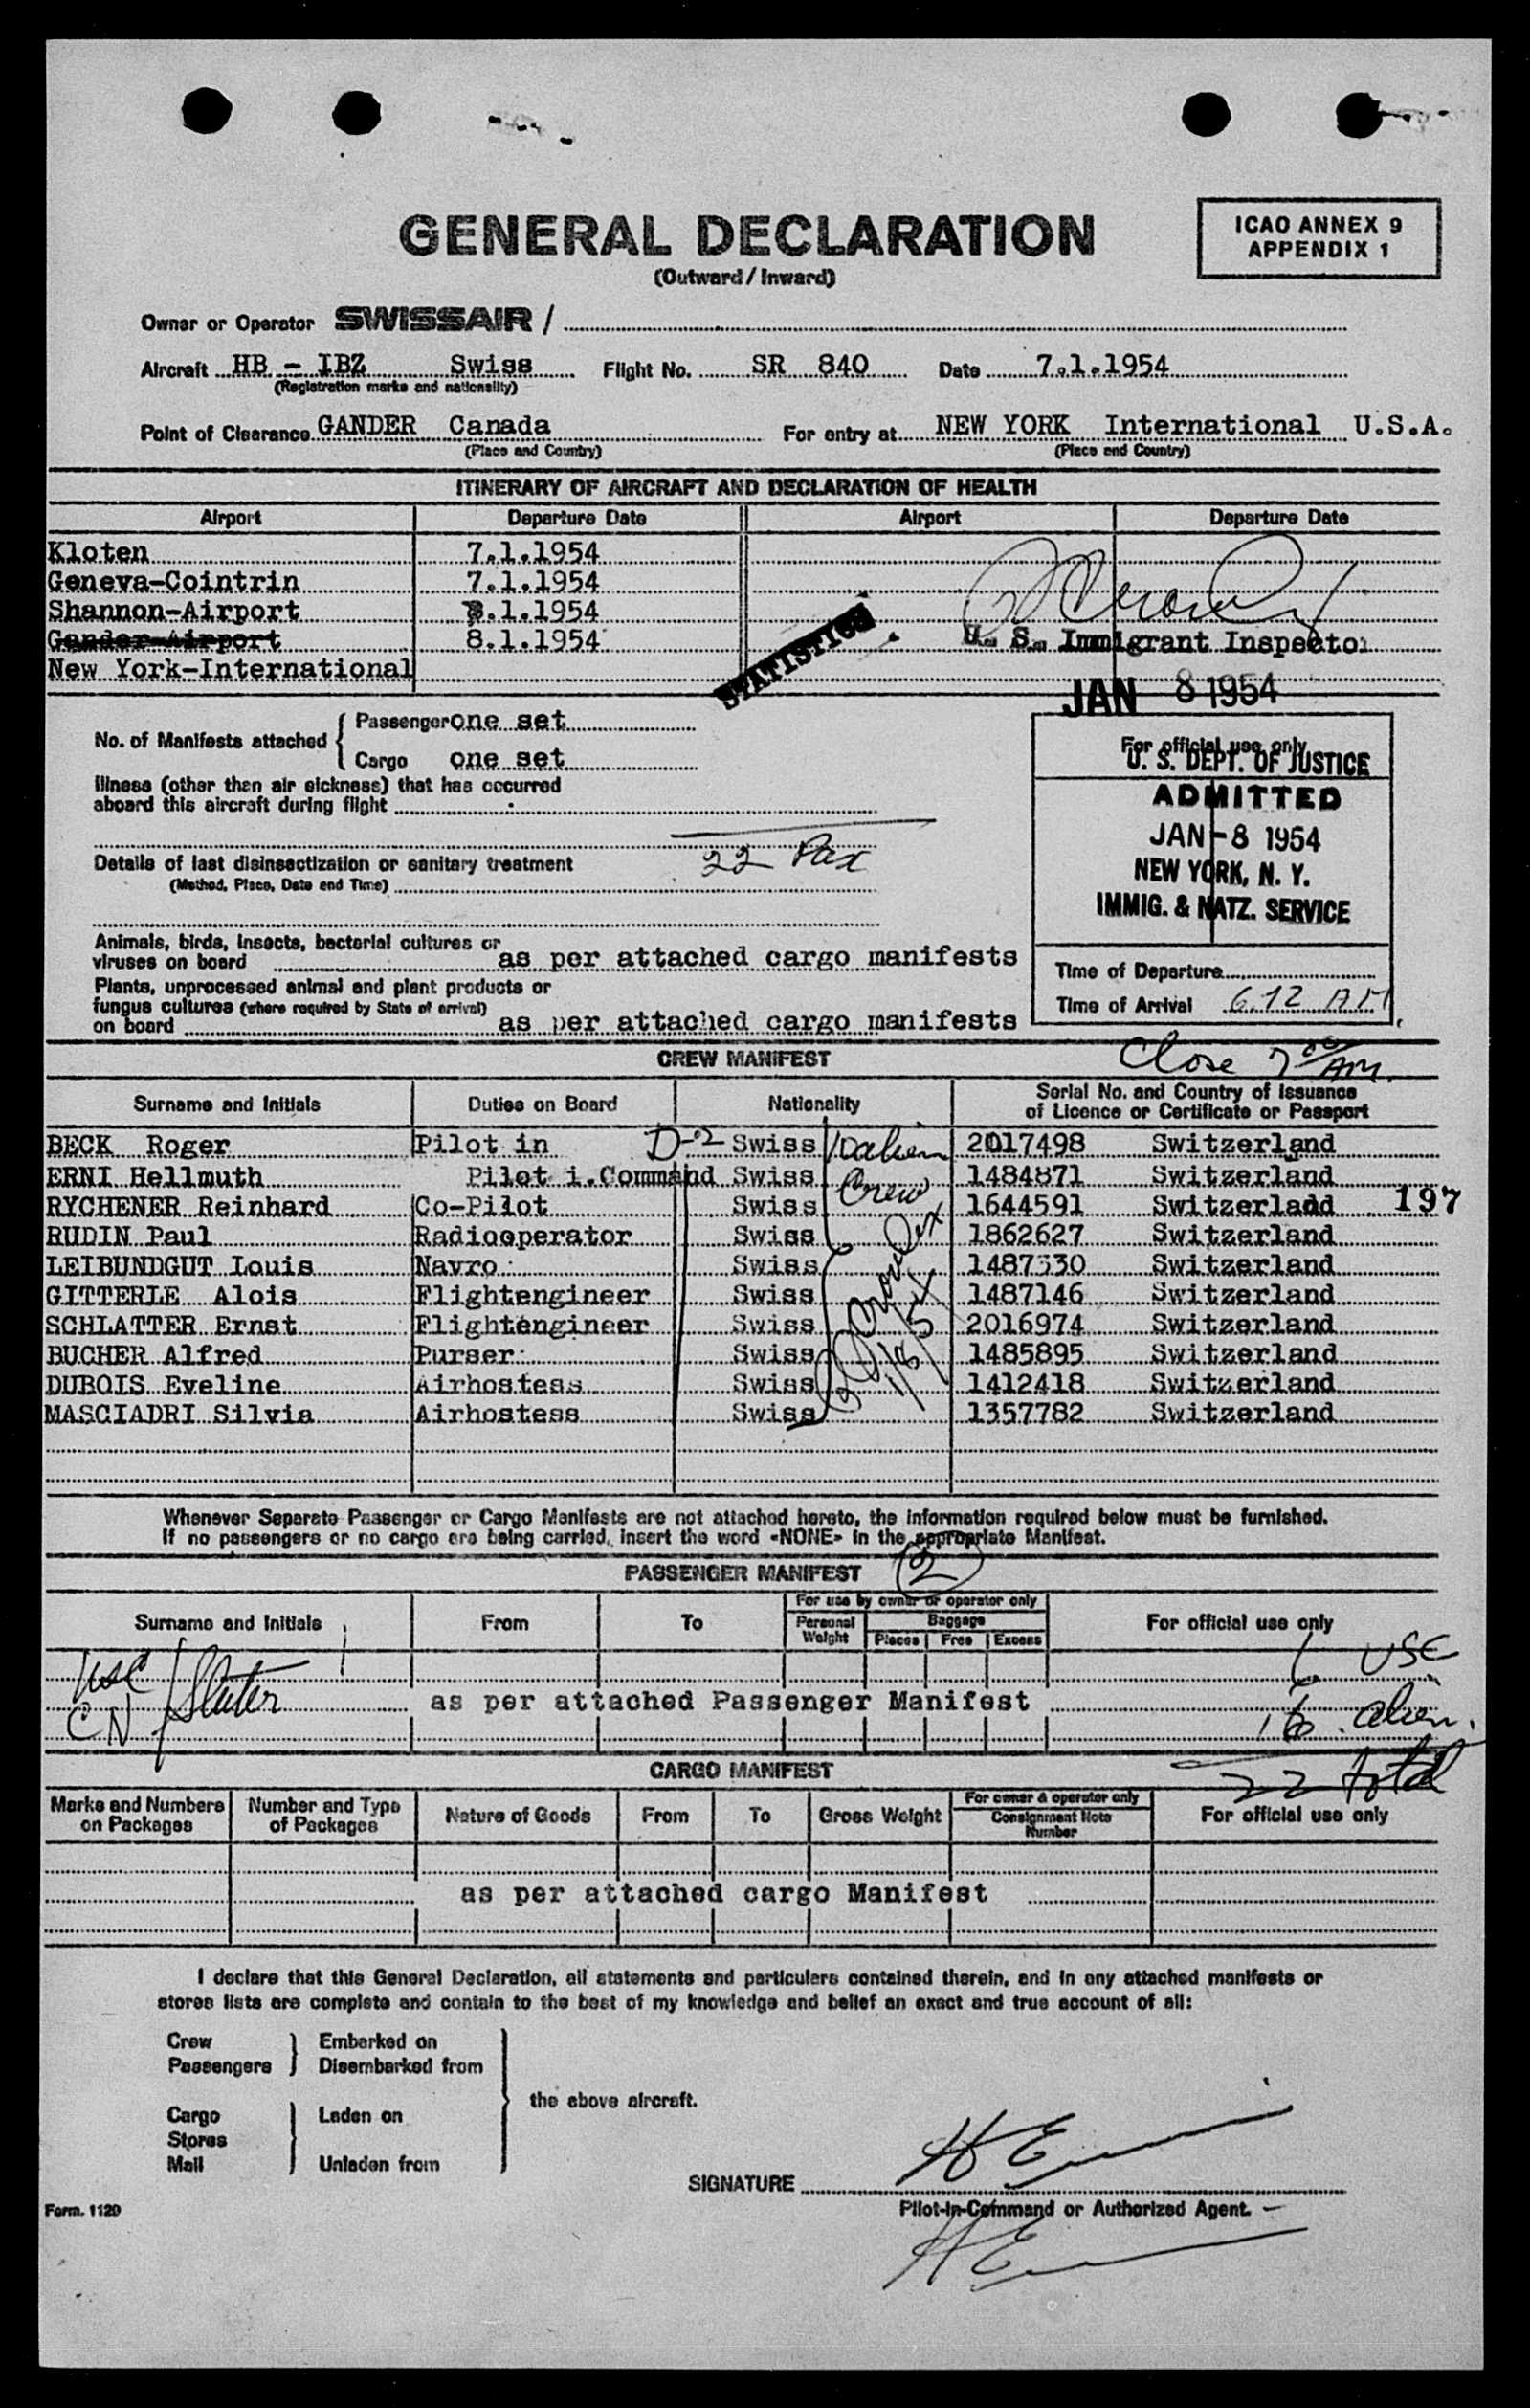 GENERAL DECLARATION
(Outward / Inward)
ICAO ANNEX 9
APPENDIX 1
Owner or Operator SWISSAIR /
Aircraft HB - IBZ Swiss Flight No. SR 840 Date 7.1.1954
(Registration marks and nationality)
Point of Clearance GANDER Canada For entry at NEW YORK International U.S.A.
(Place and Country) (Place and Country)
ITINERARY OF AIRCRAFT AND DECLARATION OF HEALTH
Airport Departure Date Airport Departure Date
Kloten 7.1.1954
Geneva-Cointrin 7.1.1954
Shannon-Airport 8.1.1954
Gander-Airport 8.1.1954
New York-International
STATISTICS
U. S. Immigrant Inspector
JAN 8 1954
No. of Manifests attached { Passenger one set
Cargo one set
Illness (other than air sickness) that has occurred
aboard this aircraft during flight
Details of last disinsectization or sanitary treatment 22 Pax
(Method, Place, Date and Time)
Animals, birds, insects, bacterial cultures or
viruses on board as per attached cargo manifests
Plants, unprocessed animal and plant products or
fungus cultures (where required by State of arrival)
on board as per attached cargo manifests
For official use only
U. S. DEPT. OF JUSTICE
ADMITTED
JAN - 8 1954
NEW YORK, N. Y.
IMMIG. & NATZ. SERVICE
Time of Departure
Time of Arrival 6.12 AM
Close 7 00 AM.
CREW MANIFEST
Surname and Initials Duties on Board Nationality Serial No. and Country of Issuance
of Licence or Certificate or Passport
BECK Roger Pilot in D-2 Swiss 10 alien 2017498 Switzerland
ERNI Hellmuth Pilot i.Command Swiss Crew 1484871 Switzerland
RYCHENER Reinhard Co-Pilot Swiss 1644591 Switzerladd 197
RUDIN Paul Radiooperator Swiss 1862627 Switzerland
LEIBUNDGUT Louis Navro Swiss 1487330 Switzerland
GITTERLE Alois Flightengineer Swiss 1487146 Switzerland
SCHLATTER Ernst Flightengineer Swiss 2016974 Switzerland
BUCHER Alfred Purser Swiss 1485895 Switzerland
DUBOIS Eveline Airhostess Swiss 1412418 Switzerland
MASCIADRI Silvia Airhostess Swiss 1357782 Switzerland
1/8/54
Whenever Separate Passenger or Cargo Manifests are not attached hereto, the information required below must be furnished.
If no passengers or no cargo are being carried, insert the word «NONE» in the appropriate Manifest.
PASSENGER MANIFEST 2
Surname and Initials From To For use by owner or operator only For official use only
Personal Weight Baggage
Pieces Free Excess
USC 6 USC
CN as per attached Passenger Manifest 16 alien.
22 total
CARGO MANIFEST
Marks and Numbers on Packages Number and Type of Packages Nature of Goods From To Gross Weight For owner & operator only For official use only
Consignment Note Number
as per attached cargo Manifest
I declare that this General Declaration, all statements and particulars contained therein, and in any attached manifests or
stores lists are complete and contain to the best of my knowledge and belief an exact and true account of all:
Crew Embarked on
Passengers Disembarked from
the above aircraft.
Cargo Laden on
Stores
Mail Unladen from
SIGNATURE
Form. 1120 Pilot-in-Command or Authorized Agent.